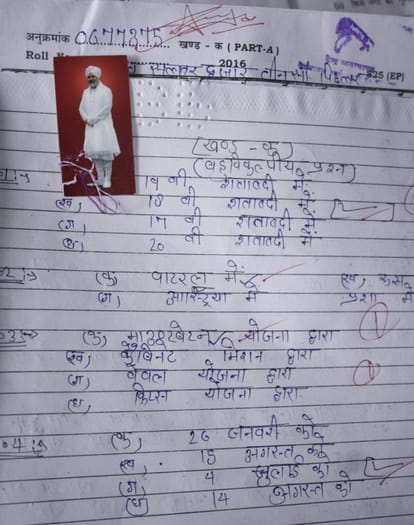 अनुक्रमांक 0677875 खण्ड - क (PART-A)
Roll No. 2016 825 (EP)
हजार तीन सौ
(खण्ड - क)
(बहुविकल्पीय प्रश्न)
19 वी शताब्दी में
(ख) 18 वी शताब्दी में
(ग) 17 वी शताब्दी में
20 वी शताब्दी में
(क) वाटरलू में (ख)
(ग) आस्ट्रिया में प्रशा में
(क) माउण्टबेटन योजना द्वारा
(ख) कैबिनेट मिशन द्वारा
(ग) वेवल योजना द्वारा
(घ) क्रिप्स योजना द्वारा
4 (क) 26 जनवरी को
(ख) 15 अगस्त को
(ग) 4 जुलाई को
(घ) 14 अगस्त को